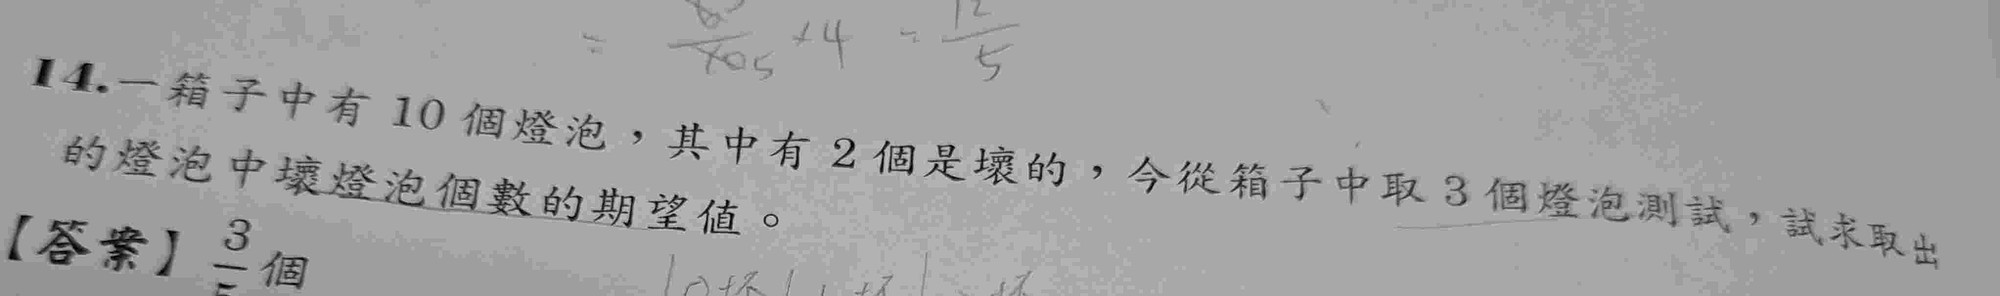 = 6/10 5 ×4 = 12/5
14.一箱子中有 10 個燈泡，其中有 2 個是壞的，今從箱子中取 3 個燈泡測試，試求取出
的燈泡中壞燈泡個數的期望值。
【答案】3/5 個